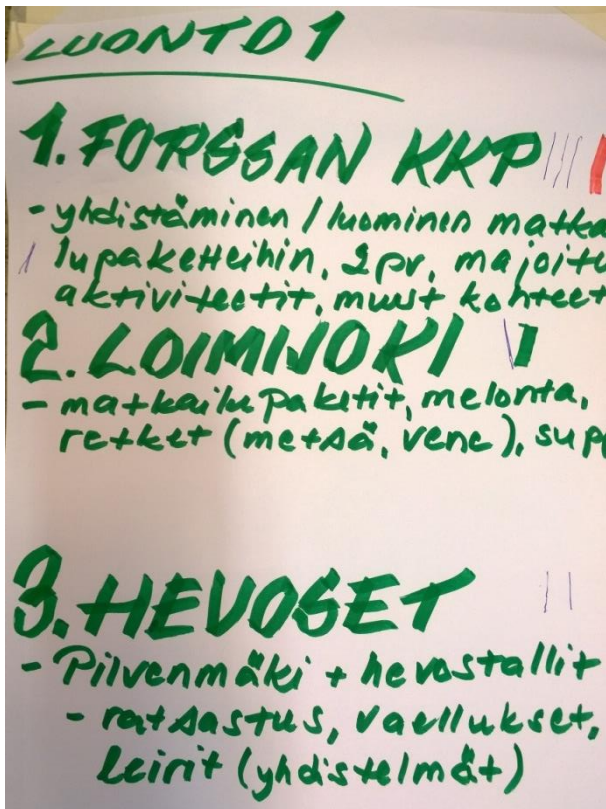 LUONTO 1
1. FORSSAN KKP
- yhdistäminen / luominen matka
lupaketteihin, 2pv, majoitu
aktiviteetit, muut kohteet
2. LOIMIJOKI
- matkailupaketit, melonta,
retket (metsä, vene), supp
3. HEVOSET
- Pilvenmäki + hevostallit
- ratsastus, vaellukset,
leirit (yhdistelmät)